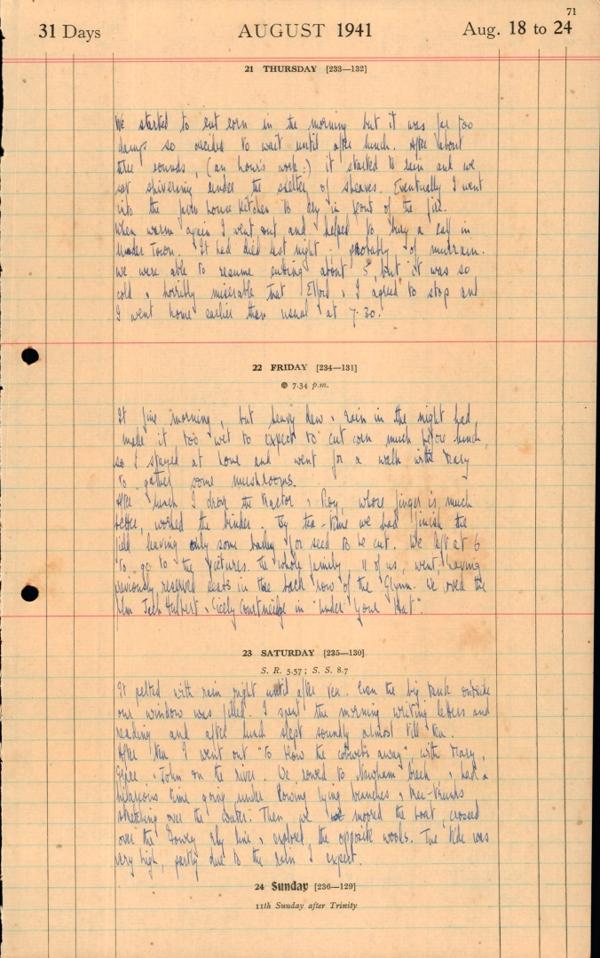 71
31 Days AUGUST 1941 Aug. 18 to 24
21 THURSDAY [233—132]
We started to cut corn in the morning but it was far too
damp so decided to wait until after lunch. After about
three rounds, (an hour's work:) it started to rain and we
sat shivering under the shelter of sheaves. Eventually I went
into the farm house kitchen to dry in front of the fire.
When warm again I went out and helped to bury a calf in
Town. It had died last night probably of murrain.
We were able to resume cutting about 5, but it was so
cold & horribly miserable that & I agreed to stop and
I went home earlier than usual at 7.30.
22 FRIDAY [234—131]
7.34 p.m.
It fine morning, but heavy dew & rain in the night had
made it too wet to expect to cut corn much before lunch,
so I stayed at home and went for a walk with Mary
to gather some mushrooms.
After lunch I drove the tractor & Roy, whose finger is much
better, worked the binder. By tea-time we had finish the
field leaving only some barley for seed to be cut. We left at 6
to go to the pictures. The whole family, 11 of us, went, having
previously reserved seats in the back row of the . We the
film Jack Hulbert & Cicely Courtneidge in "Under Your Hat".
23 SATURDAY [235—130]
S. R. 5.57; S. S. 8.7
It pelted with rain right until after tea. Even the big tank outside
our window was filled. I spent the morning writing letters and
reading and after lunch slept soundly almost till tea.
After tea I went out "to blow the cobwebs away" with Mary,
& John on the river. We rowed to Newham beach, & had a
hilarious time going under low lying branches & tree-trunks
stretching over the water. Then we moored the boat, crossed
over the Fowey rly line & explored the opposite woods. The tide was
very high, partly due to the rain I expect.
24 Sunday [236—129]
11th Sunday after Trinity